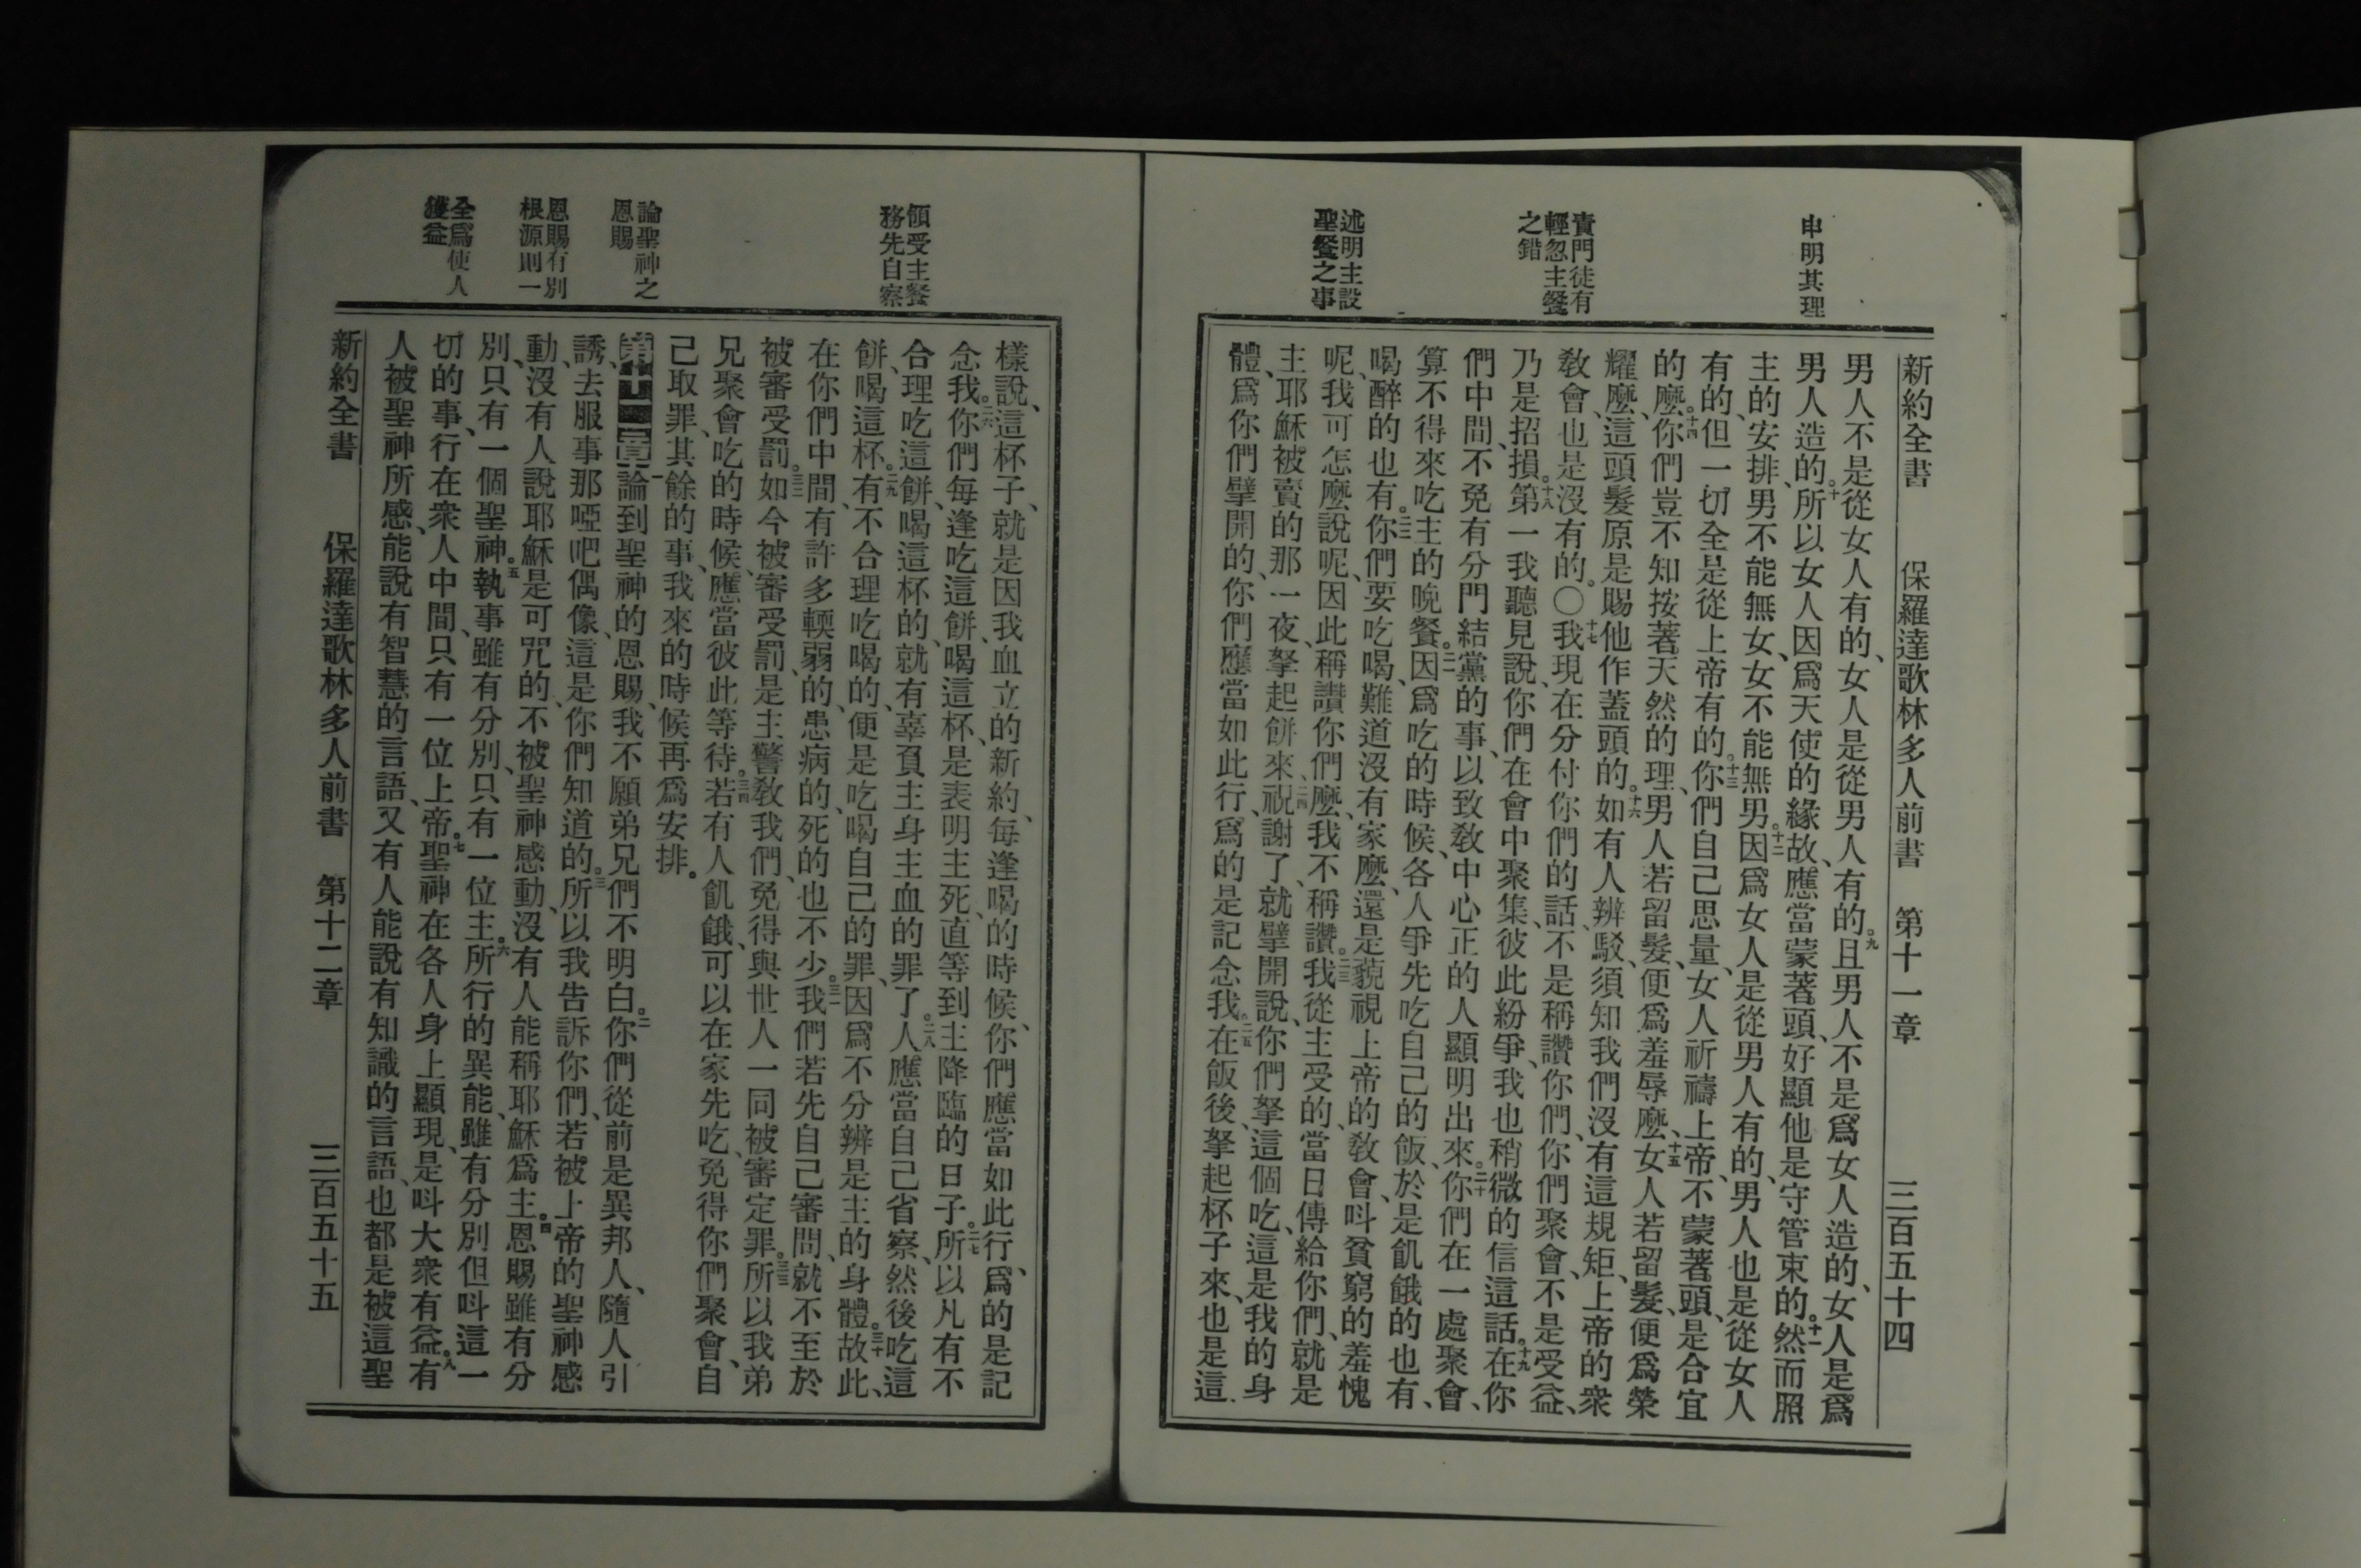 申明其理
責門徒有
輕忽主餐
之錯
述明主設
聖餐之事
新約全書 保羅達歌林多人前書 第十一章 三百五十四
男人不是從女人有的、女人是從男人有的。九且男人不是爲女人造的、女人是爲
男人造的。十所以女人因爲天使的緣故、應當蒙著頭、好顯他是守管束的。十一然而照
主的安排、男不能無女、女不能無男。十二因爲女人是從男人有的、男人也是從女人
有的、但一切全是從上帝有的。十三你們自己思量、女人祈禱上帝、不蒙著頭、是合宜
的麽。十四你們豈不知按著天然的理、男人若留髮、便爲羞辱麽、十五女人若留髮、便爲榮
耀麽、這頭髮原是賜他作蓋頭的。十六如有人辨駁、須知我們沒有這規矩、上帝的衆
敎會、也是沒有的。○十七我現在分付你們的話、不是稱讚你們、你們聚會、不是受益、
乃是招損。十八第一我聽見說、你們在會中聚集、彼此紛爭、我也稍微的信這話。十九在你
們中間、不免有分門結黨的事、以致敎中心正的人顯明出來。二十你們在一處聚會、
算不得來吃主的晚餐。二一因爲吃的時候、各人爭先吃自己的飯、於是飢餓的也有、
喝醉的也有。二二你們要吃喝、難道沒有家麽、還是藐視上帝的敎會、呌貧窮的羞愧
呢、我可怎麽說呢、因此稱讚你們麽、我不稱讚。二三我從主受的、當日傳給你們、就是
主耶穌被賣的那一夜、拏起餅來、二四祝謝了、就擘開說、你們拏這個吃、這是我的身
體、爲你們擘開的、你們應當如此行、爲的是記念我。二五在飯後、拏起杯子來、也是這
領受主餐
務先自察
論聖神之
恩賜
恩賜有別
根源則一
全爲使人
獲益
樣說、這杯子、就是因我血立的新約、每逢喝的時候、你們應當如此行、爲的是記
念我。二六你們每逢吃這餅、喝這杯、是表明主死、直等到主降臨的日子。二七所以凡有不
合理吃這餅、喝這杯的、就有辜負主身主血的罪了。二八人應當自己省察、然後吃這
餅、喝這杯。二九有不合理吃喝的、便是吃喝自己的罪、因爲不分辨是主的身體。三十故此、
在你們中間、有許多輭弱的、患病的、死的也不少。三一我們若先自己審問、就不至於
被審受罰。三二如今被審受罰、是主警敎我們、免得與世人一同被審定罪。三三所以我弟
兄聚會、吃的時候、應當彼此等待。三四若有人飢餓、可以在家先吃、免得你們聚會、自
己取罪、其餘的事、我來的時候再爲安排。
第十二章一論到聖神的恩賜、我不願弟兄們不明白。二你們從前是異邦人、隨人引
誘、去服事那啞吧偶像、這是你們知道的。三所以我告訴你們、若被上帝的聖神感
動、沒有人說耶穌是可咒的、不被聖神感動、沒有人能稱耶穌爲主。四恩賜雖有分
別、只有一個聖神。五執事雖有分別、只有一位主。六所行的異能、雖有分別但呌這一
切的事、行在衆人中間、只有一位上帝。七聖神在各人身上顯現、是呌大衆有益。八有
人被聖神所感、能說有智慧的言語、又有人能說有知識的言語、也都是被這聖
新約全書 保羅達歌林多人前書 第十二章 三百五十五